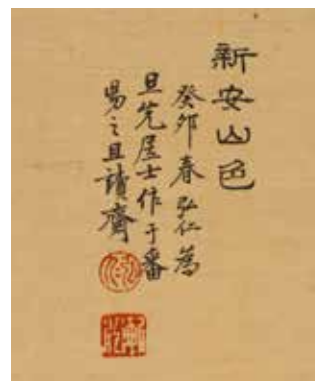 新安山色
癸卯春弘仁為
旦先居士作于番
昜之且讀齋